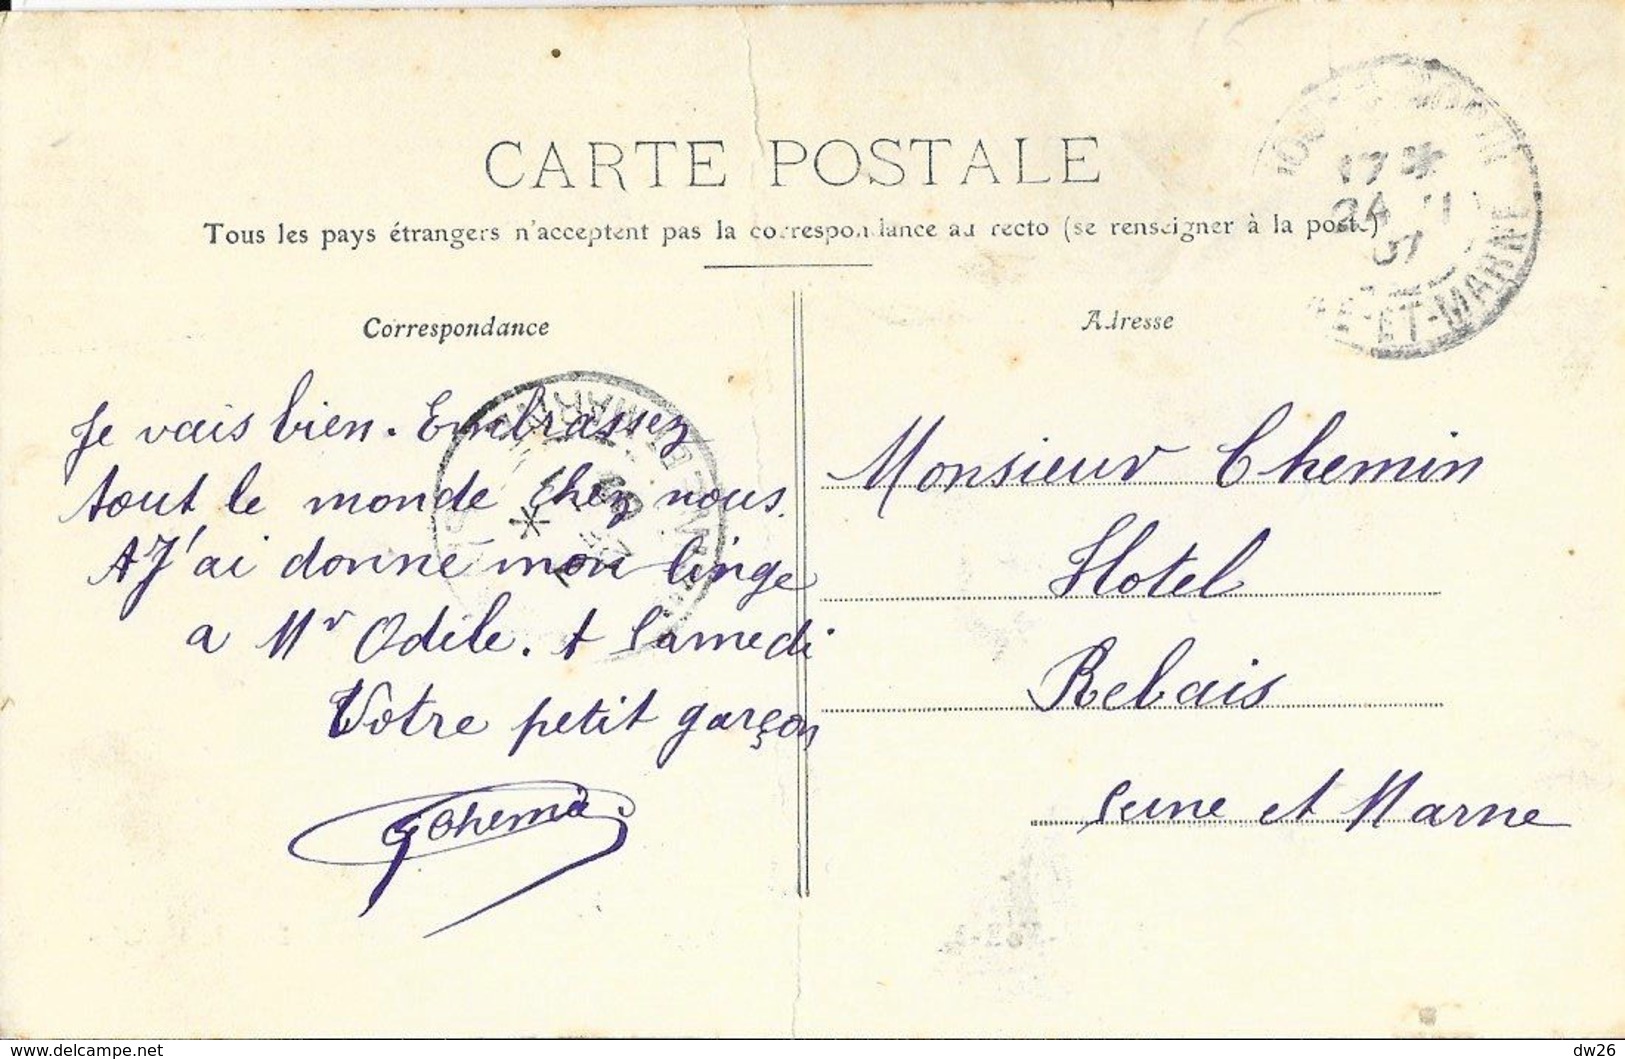 CARTE POSTALE
Tous les pays étrangers n'acceptent pas la correspondance au recto (se renseigner à la poste)
Correspondance
Je vais bien. Embrassez
tout le monde chez nous.
J'ai donné mon linge
a Mr Odile. A Samedi
Votre petit garçon
GChemin
Adresse
Monsieur Chemin
Hotel
Rebais
Seine et Marne
17 *
24 11
07
ET-MARNE
www.delcampe.net
dw26